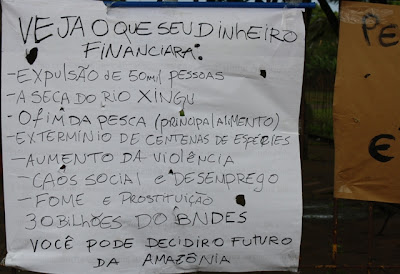 VEJA O QUE SEU DINHEIRO
FINANCIARÁ:
-EXPULSÃO DE 50MIL PESSOAS
-A SECA DO RIO XINGU
-O FIM DA PESCA (PRINCIPAL ALIMENTO)
-EXTERMÍNIO DE CENTENAS DE ESPÉCIES
-AUMENTO DA VIOLÊNCIA
-CAOS SOCIAL E DESEMPREGO
-FOME E PROSTITUIÇÃO
30 BILHÕES DO BNDES
VOCÊ PODE DECIDIR O FUTURO
DA AMAZÔNIA
PE
E